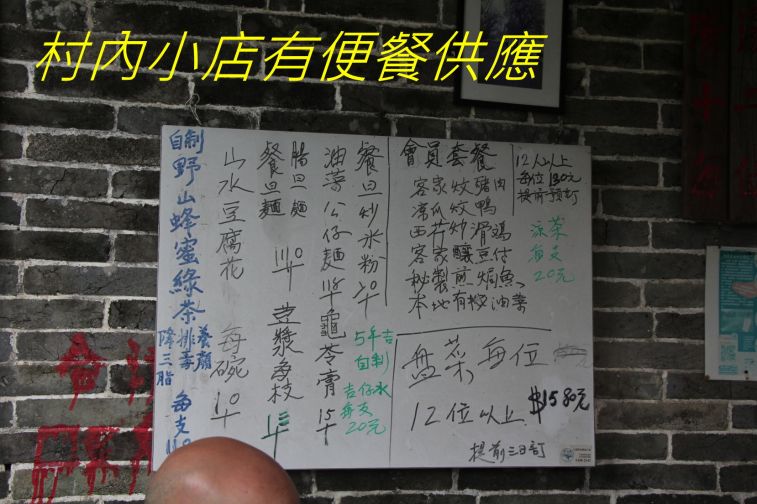 村內小店有便餐供應
會員套餐
客家炆豬肉
涼瓜炆鴨
西芹炒滑鸡
客家釀豆付
秘製煎焗魚
本地有机油菜
12人以上
每位130元
提前預訂
涼茶
每支
20元
盘菜每位
12位以上 $1580元
提前三日訂
餐旦炒米粉
油菜公仔麵
腸旦麵
餐旦麵
山水豆腐花 每碗
豆漿每枝
龜苓膏
5年
自制
吉仔水
每支
20元
自制野山蜂蜜綠茶
養顏
排毒
降三脂
每支